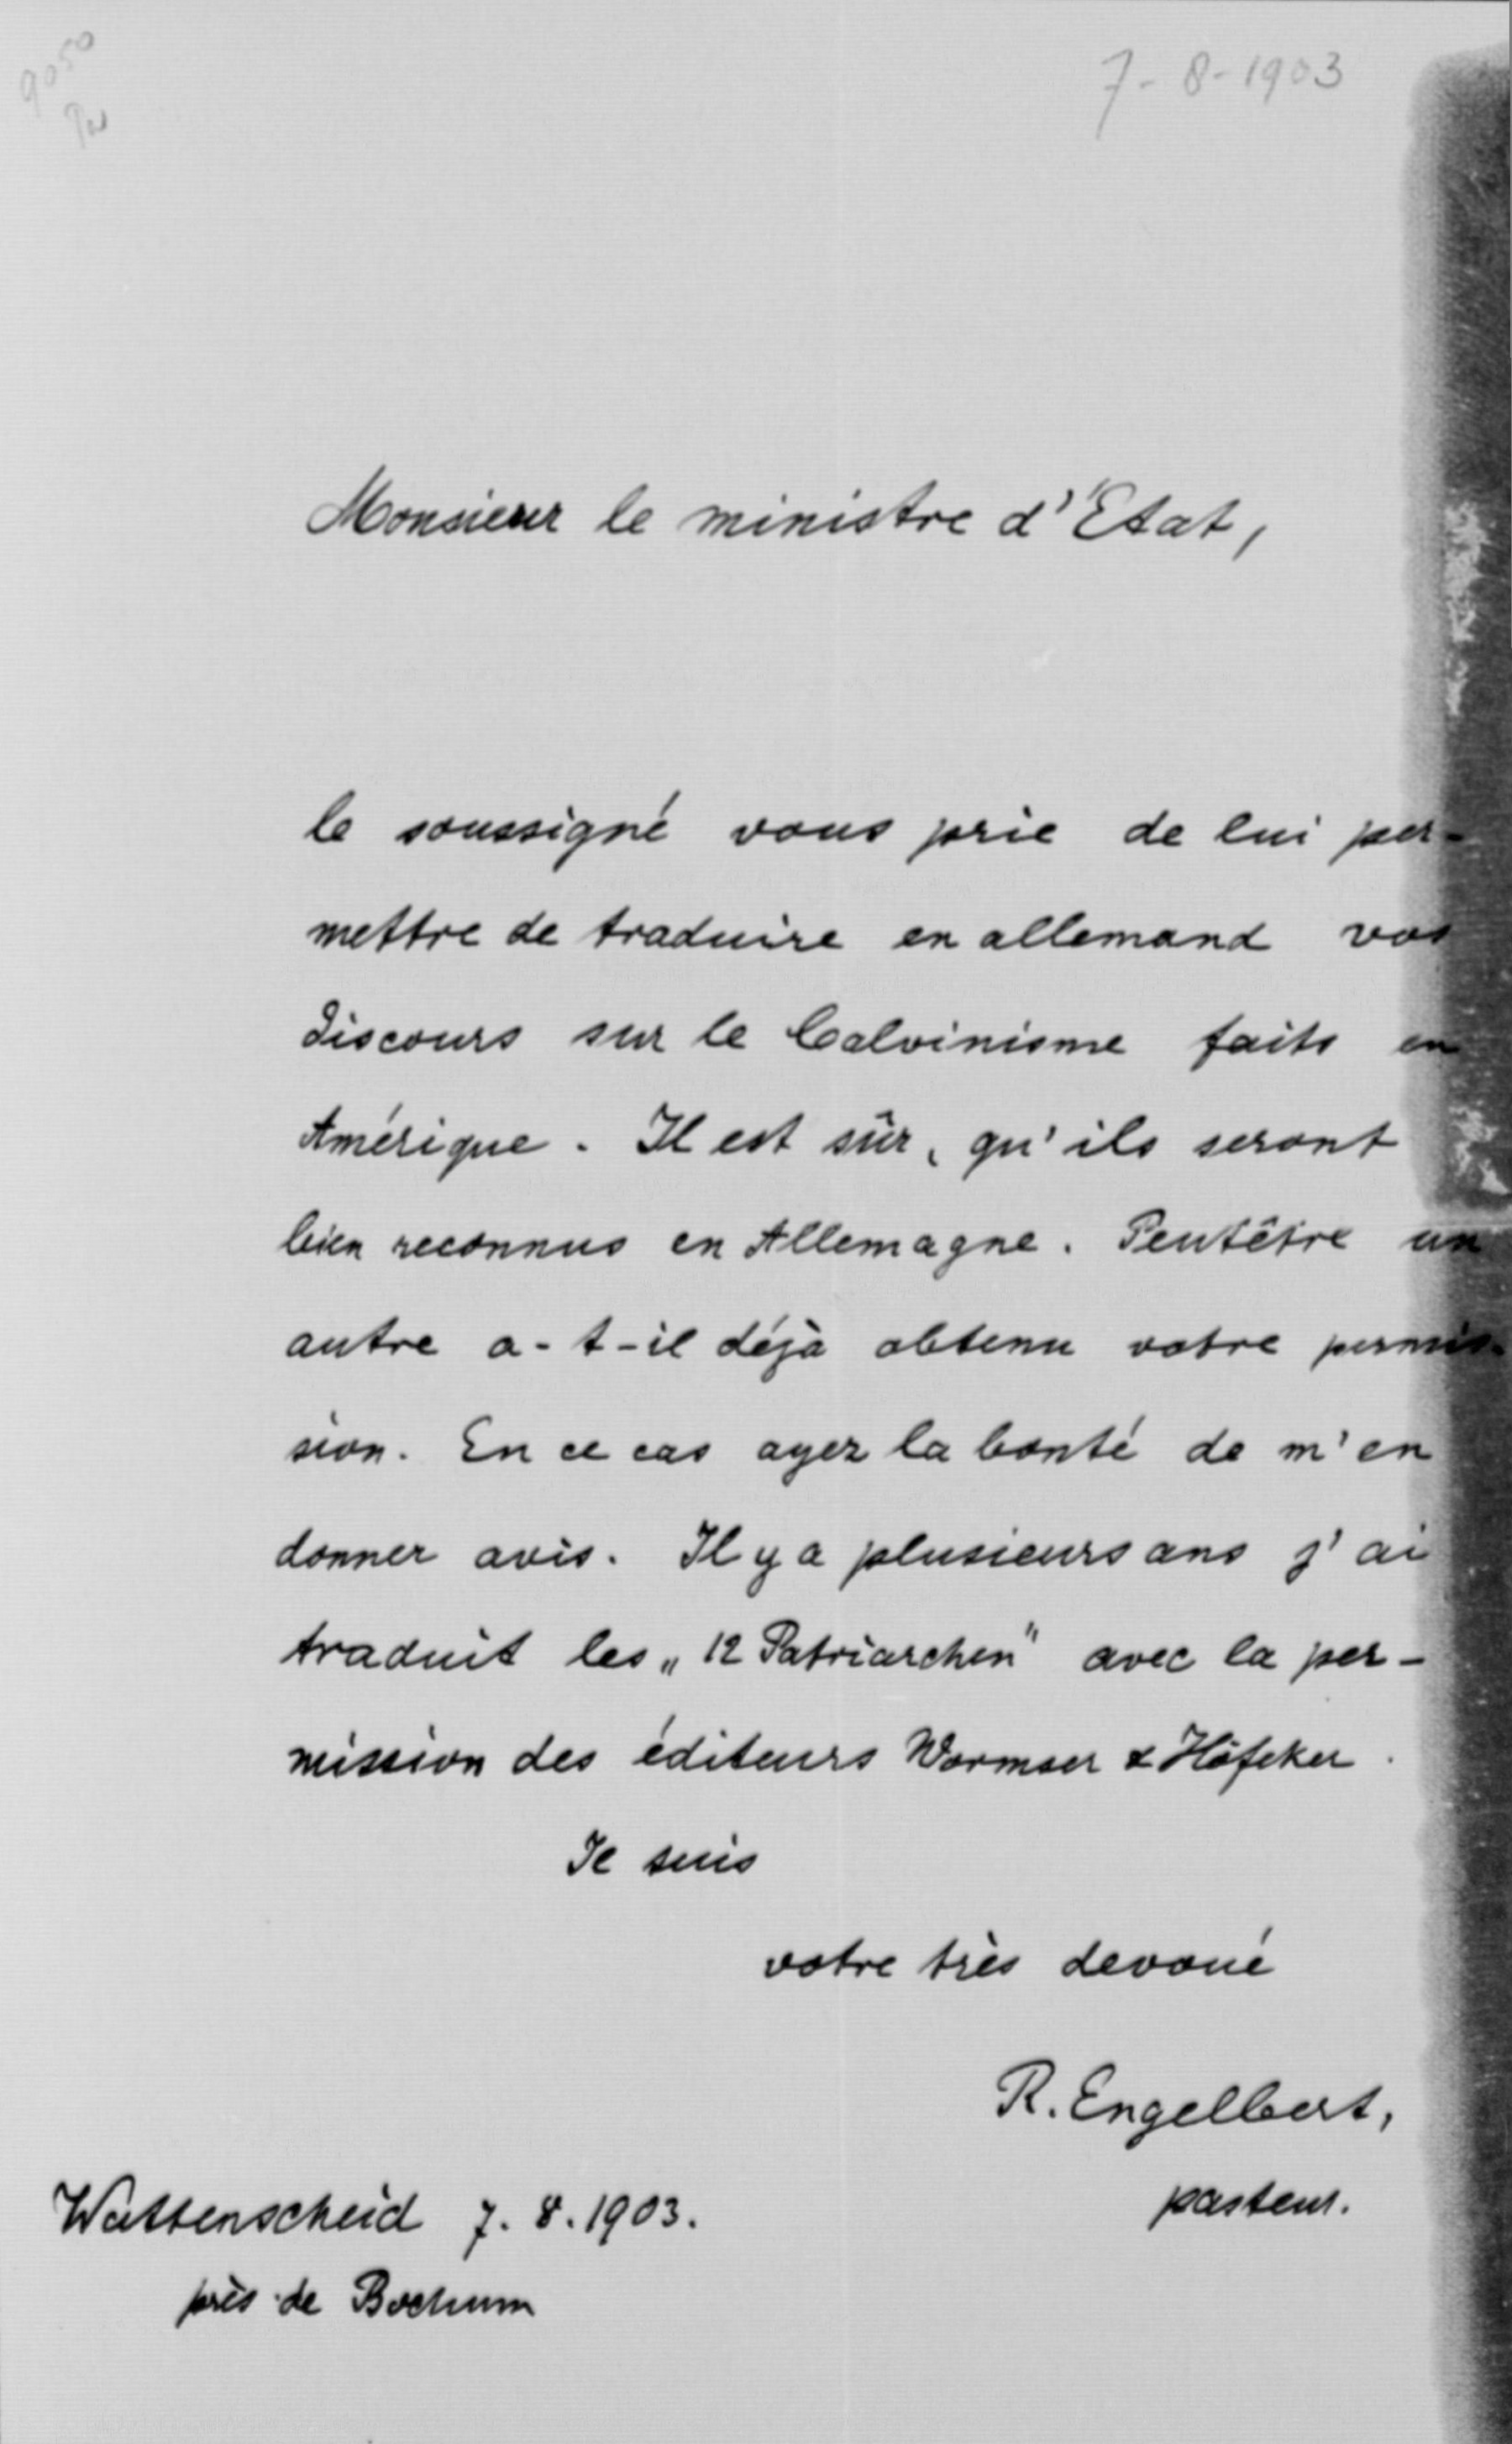 9050
7-8-1903
Monsieur le ministre d'Etat,
le soussigné vous prie de lui per-
mettre de traduire en allemand vos
discours sur le Calvinisme faits en
Amérique. Il est sûr, qu'ils seront
bien reconnus en Allemagne. Peutêtre un
autre a-t-il déjà obtenu votre permis-
sion. En ce cas ayez la bonté de m'en
donner avis. Il y a plusieurs ans j'ai
traduit les „12 Patriarchen" avec la per-
mission des éditeurs Wormser & Höfeker.
Je suis
votre très devoué
R. Engelbert,
pasteur.
Wattenscheid 7. 8. 1903.
près de Bochum